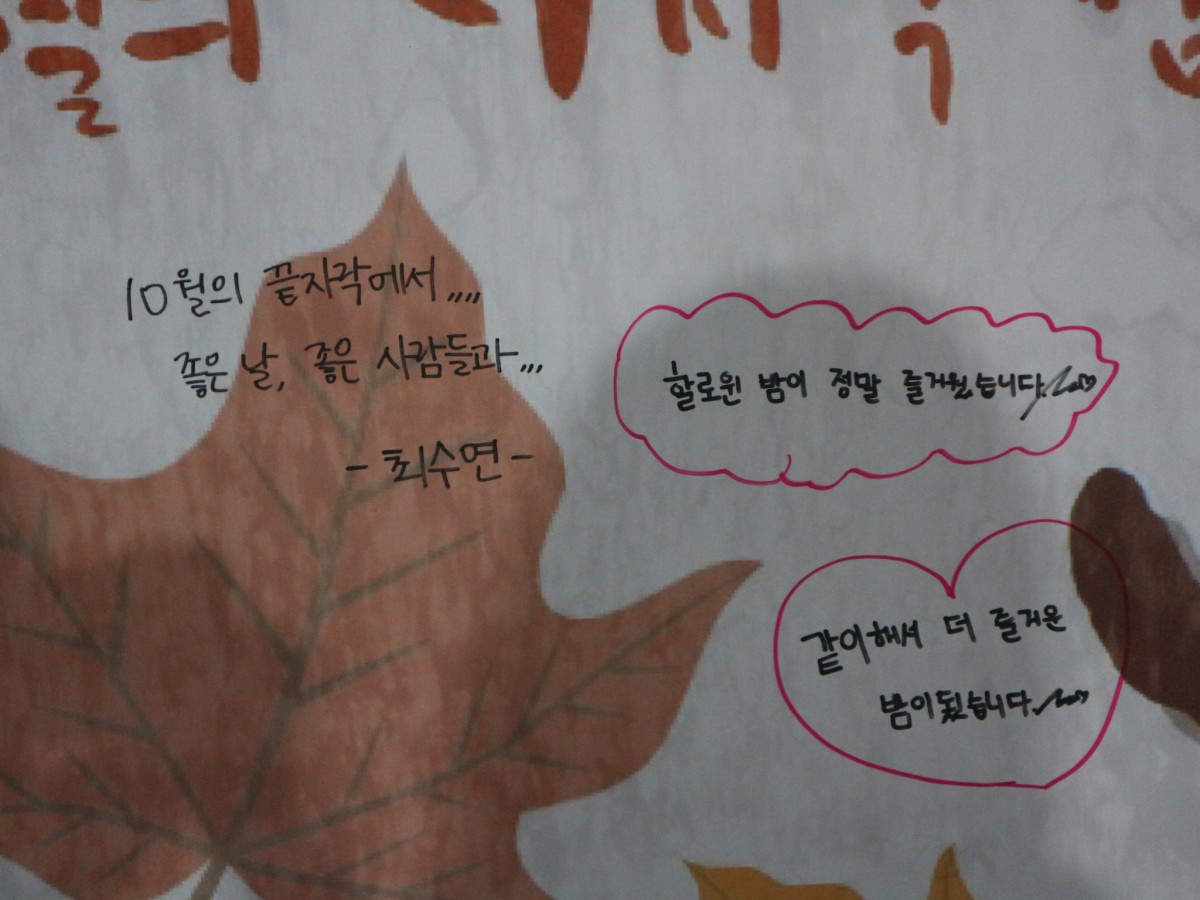 10월의 끝자락에서,,,,
좋은 날, 좋은 사람들과,,,
- 최수연 -
할로윈 밤이 정말 즐거웠습니다.
같이해서 더 즐거운
밤이됬습니다.